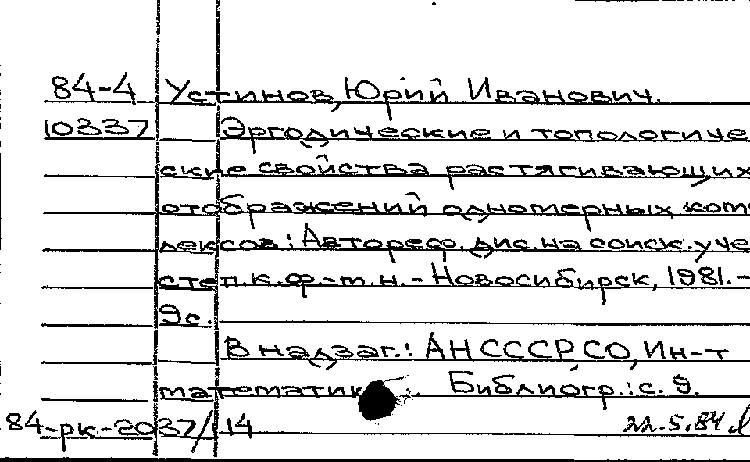 84-4 Устинов, Юрий Иванович.
10337 Эргодические и топологиче
ские свойства растягивающих
отображений одномерных комп
лексов: Автореф. дис. на соиск. уче
степ. к. ф.-т. н. - Новосибирск, 1981. -
9с.
В надзаг.: АН СССР, СО, Ин-т
математик. Библиогр.: с. 9.
84-рк-2037/14 22.5.84